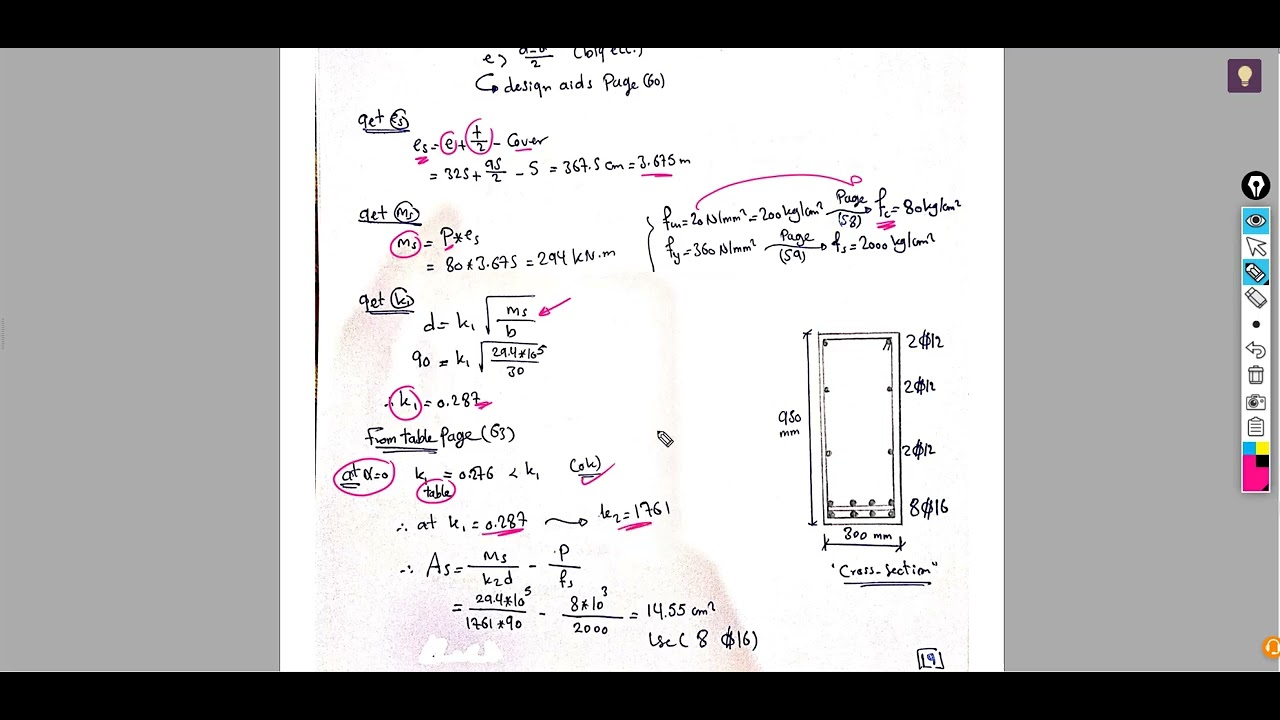 e > d-d'/2 (big ecc.)
↳ design aids Page (60)
get es
es = e + t/2 - Cover
= 325 + 95/2 - 5 = 367.5 cm = 3.675 m
get Ms
Ms = P*es
= 80 * 3.675 = 294 kN.m
fcu = 20 N/mm² = 200 kg/cm² Page (58) → fc = 80 kg/cm²
fy = 360 N/mm² Page (59) → fs = 2000 kg/cm²
get k1
d = k1 √(Ms/b)
90 = k1 √(29.4*10^5/30)
∴ k1 = 0.287
From table Page (63)
at α=0 k1 table = 0.276 < k1 (ok)
∴ at k1 = 0.287 → k2 = 1761
∴ As = Ms/k2d - P/fs
= 29.4*10^5/1761*90 - 8*10^3/2000 = 14.55 cm²
Use (8 ϕ16)
2ϕ12
2ϕ12
2ϕ12
8ϕ16
950 mm
300 mm
"Cross-section"
19